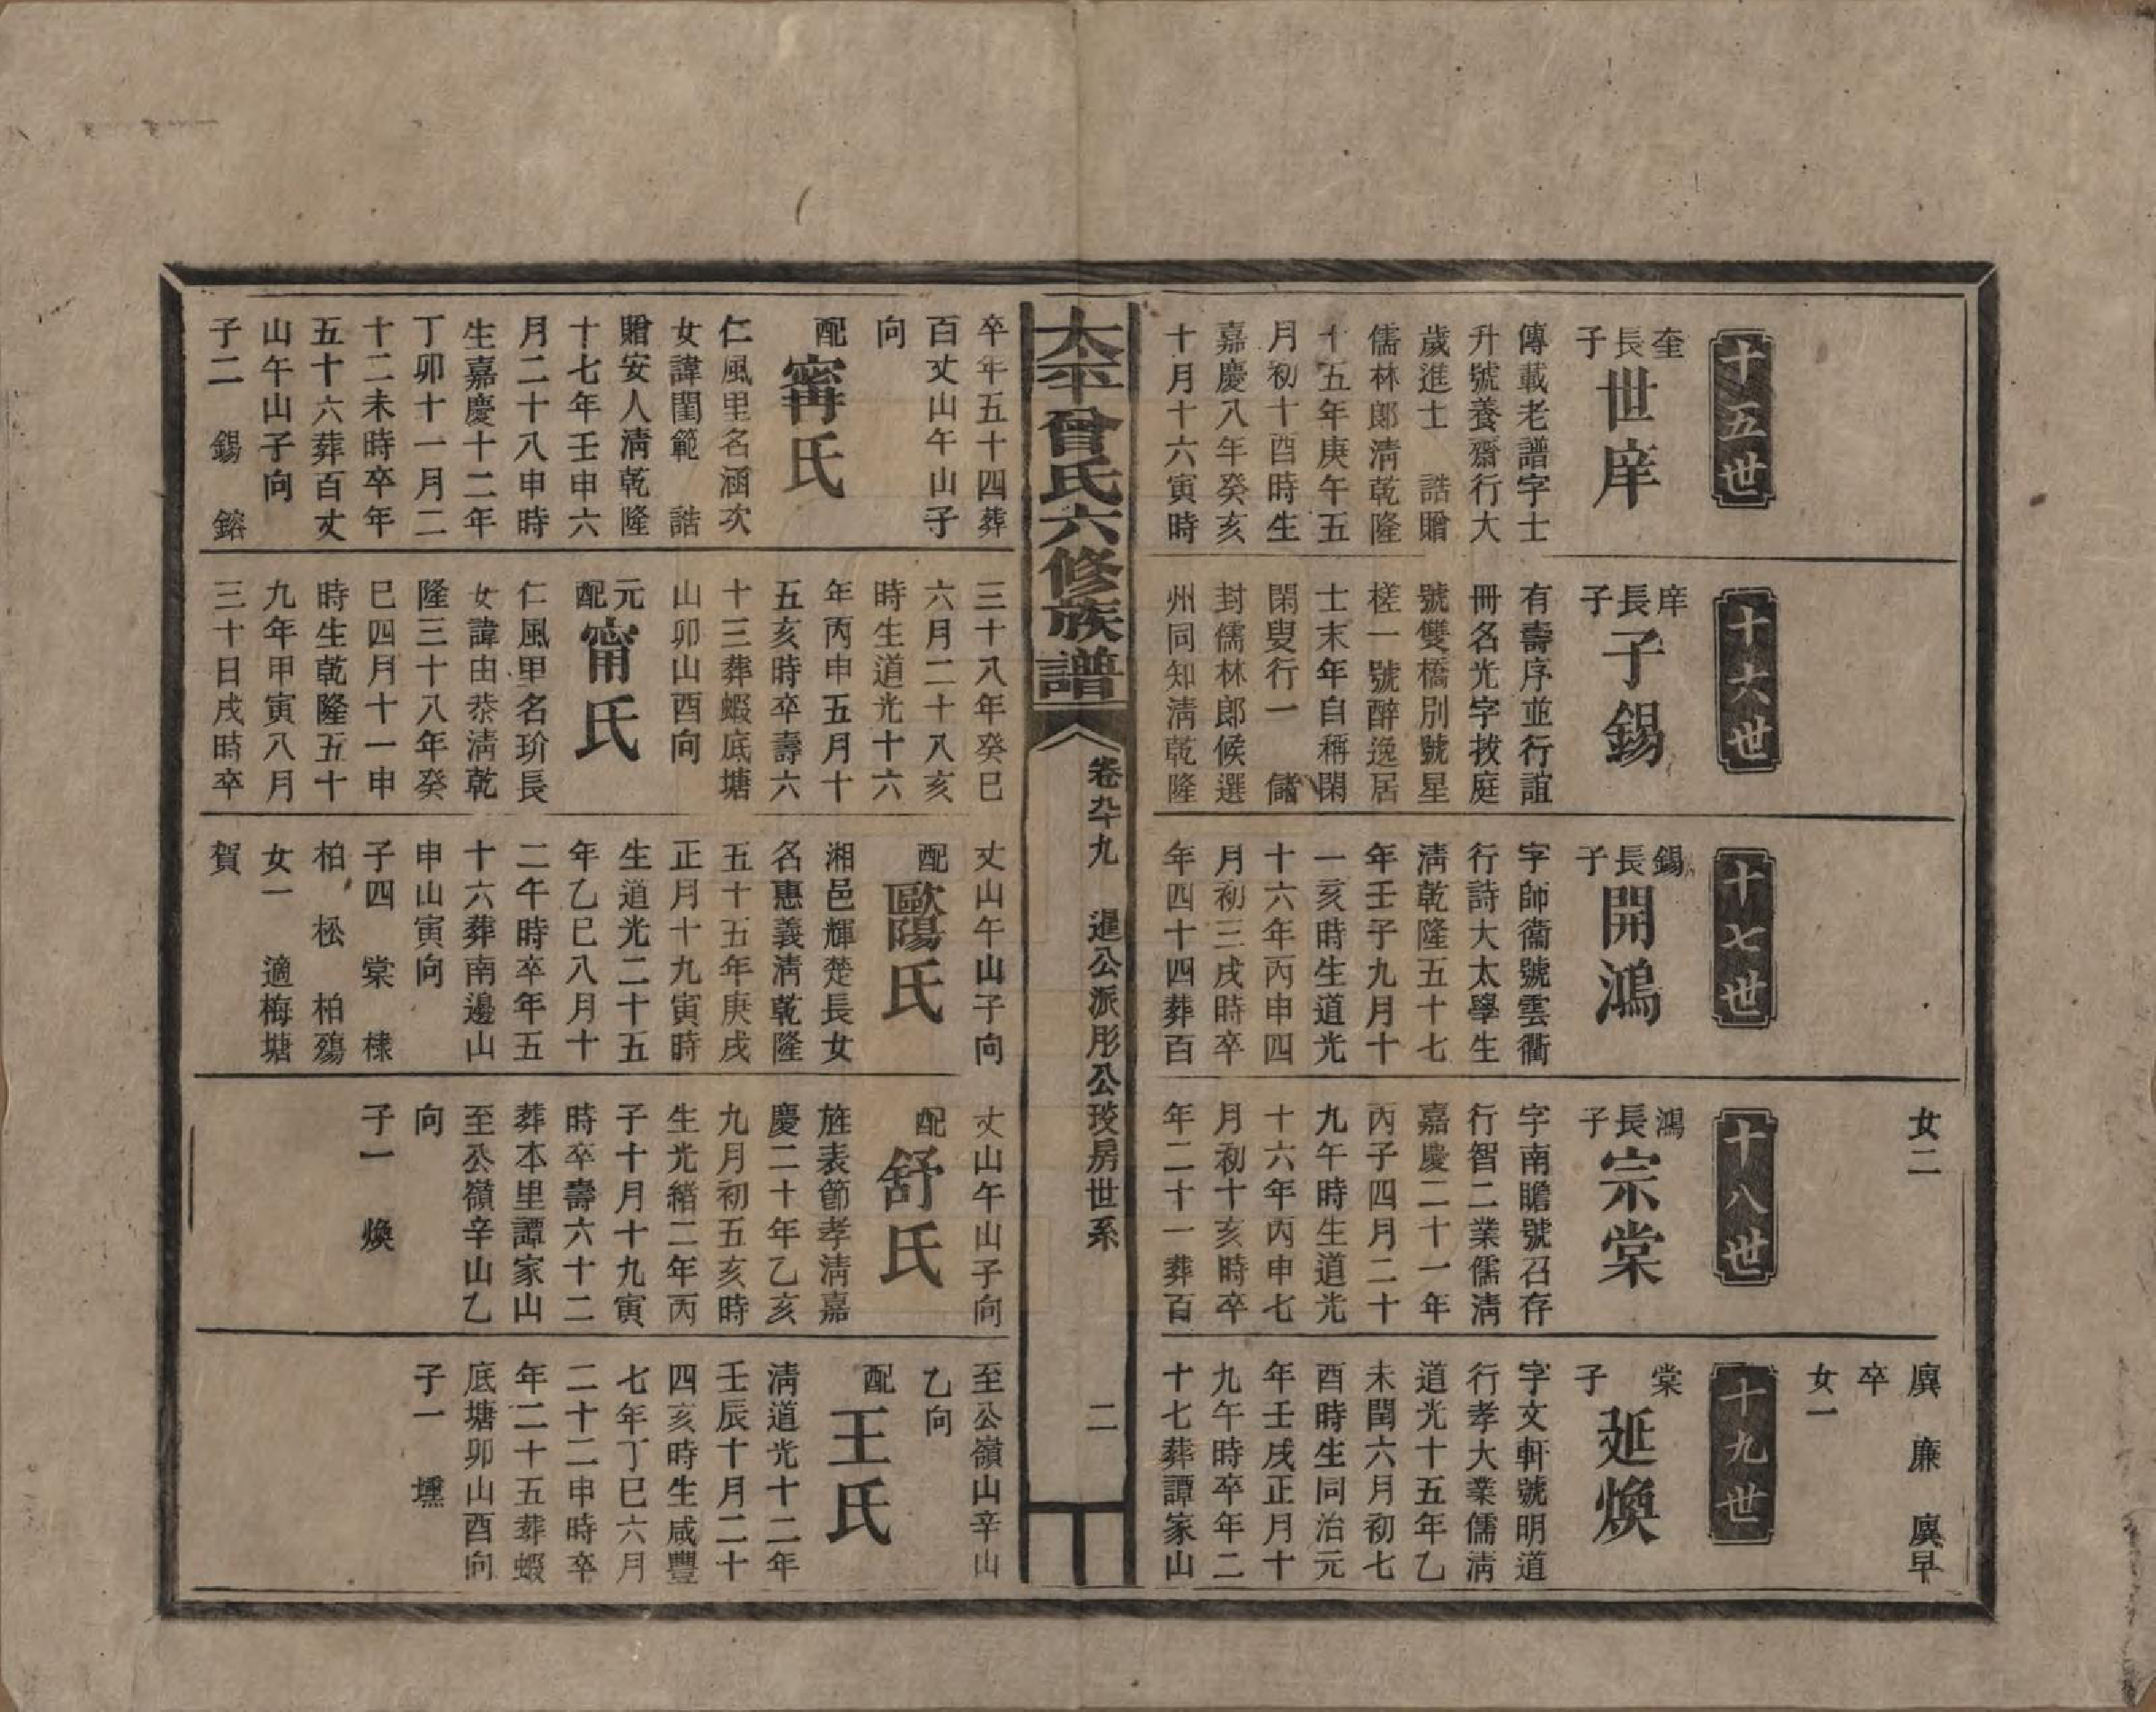 十五世
奎長子
世庠
傳載老譜字士
升號養齋行大
歲進士 誥贈
儒林郎清乾隆
十五年庚午五
月初十酉時生
嘉慶八年癸亥
十月十六寅時
十六世
庠長子
子錫
有壽序並行誼
冊名光字拔庭
號雙橋別號星
槎一號醉逸居
士末年自稱閑
閑叟行一 儲
封儒林郎候選
州同知清乾隆
十七世
錫長子
開鴻
字師衞號雲衢
行詩大太學生
清乾隆五十七
年壬子九月十
一亥時生道光
十六年丙申四
月初三戌時卒
年四十四葬百
女二
十八世
鴻長子
宗棠
字南瞻號召存
行智二業儒清
嘉慶二十一年
丙子四月二十
九午時生道光
十六年丙申七
月初十亥時卒
年二十一葬百
廙 廉 廙早
卒
女一
十九世
棠子
延煥
字文軒號明道
行孝大業儒清
道光十五年乙
未閏六月初七
酉時生同治元
年壬戌正月十
九午時卒年二
十七葬譚家山
太平曾氏六修族譜
卷九十九 暹公派彤公珓房世系
二
卒年五十四葬
百丈山午山子
向
配
甯氏
仁風里名涵次
女諱閨範 誥
贈安人清乾隆
十七年壬申六
月二十八申時
生嘉慶十二年
丁卯十一月二
十二未時卒年
五十六葬百丈
山午山子向
子二 錫 鎔
三十八年癸巳
六月二十八亥
時生道光十六
年丙申五月十
五亥時卒壽六
十三葬蝦底塘
山卯山酉向
元配
甯氏
仁風里名玠長
女諱由恭清乾
隆三十八年癸
巳四月十一申
時生乾隆五十
九年甲寅八月
三十日戌時卒
丈山午山子向
配
歐陽氏
湘邑輝楚長女
名惠義清乾隆
五十五年庚戌
正月十九寅時
生道光二十五
年乙巳八月十
二午時卒年五
十六葬南邊山
申山寅向
子四 棠 棣
柏 松 柏殤
女一 適梅塘
賀
丈山午山子向
配
舒氏
旌表節孝清嘉
慶二十年乙亥
九月初五亥時
生光緒二年丙
子十月十九寅
時卒壽六十二
葬本里譚家山
至公嶺辛山乙
向
子一 煥
至公嶺山辛山
乙向
配
王氏
清道光十二年
壬辰十月二十
四亥時生咸豐
七年丁巳六月
二十二申時卒
年二十五葬蝦
底塘卯山酉向
子一 壎